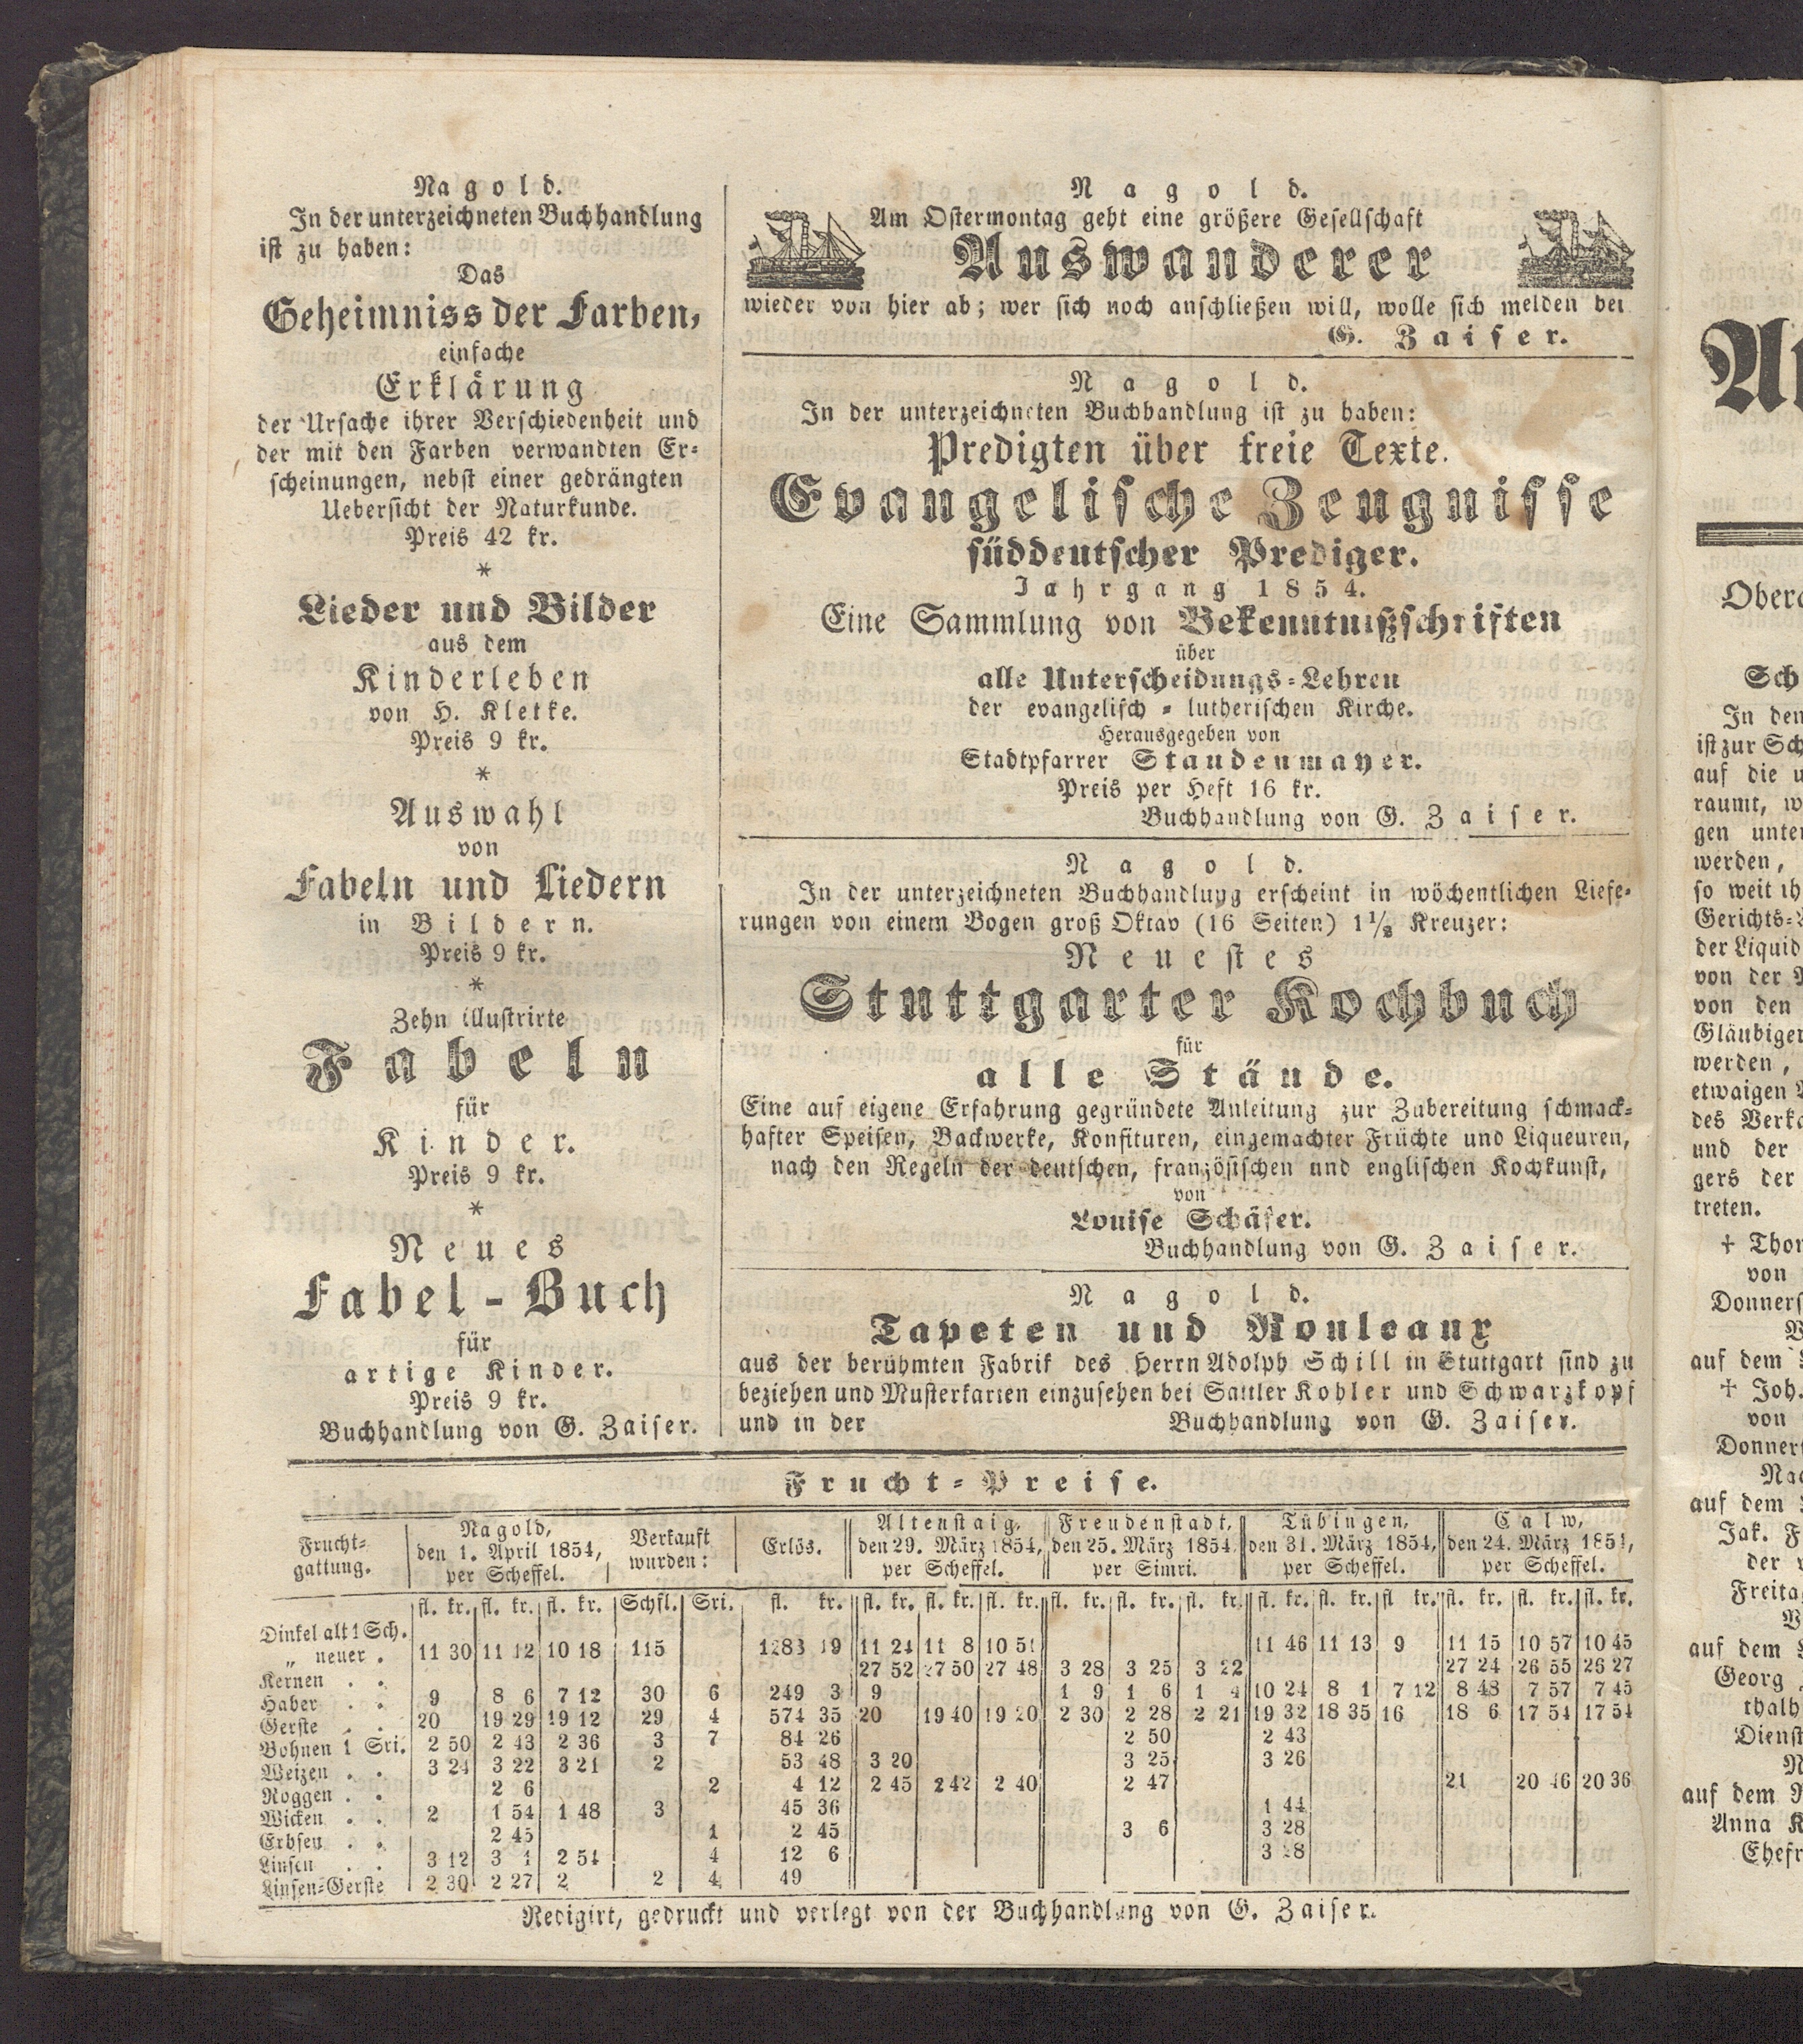 Nagold.
In der unterzeichneten Buchhandlung
ist zu haben:
Das
Geheimniss der Farben,
einfache
Erklärung
der Ursache ihrer Verschiedenheit und
der mit den Farben verwandten Er-
scheinungen, nebst einer gedrängten
Uebersicht der Naturkunde.
Preis 42 kr.
*
Lieder und Bilder
aus dem
Kinderleben
von H. Kletke.
Preis 9 kr.
*
Auswahl
von
Fabeln und Liedern
in Bildern.
Preis 9 kr.
*
Zehn illustrirte
Fabeln
für
Kinder.
Preis 9 kr.
*
Neues
Fabel-Buch
für
artige Kinder.
Preis 9 kr.
Buchhandlung von G. Zaiser.
Nagold.
Am Ostermontag geht eine größere Gesellschaft
Auswanderer
wieder von hier ab; wer sich noch anschließen will, wolle sich melden bei
G. Zaiser.
Nagold.
In der unterzeichneten Buchhandlung ist zu haben:
Predigten über freie Texte.
Evangelische Zeugnisse
süddeutscher Prediger.
Jahrgang 1854.
Eine Sammlung von Bekenntnißschriften
über
alle Unterscheidungs-Lehren
der evangelisch-lutherischen Kirche.
Herausgegeben von
Stadtpfarrer Staudenmayer.
Preis per Heft 16 kr.
Buchhandlung von G. Zaiser.
Nagold.
In der unterzeichneten Buchhandlung erscheint in wöchentlichen Liefe-
rungen von einem Bogen groß Oktav (16 Seiten) 1½ Kreuzer:
Neuestes
Stuttgarter Kochbuch
für
alle Stände.
Eine auf eigene Erfahrung gegründete Anleitung zur Zubereitung schmack-
hafter Speisen, Backwerke, Konfituren, eingemachter Früchte und Liqueuren,
nach den Regeln der deutschen, französischen und englischen Kochkunst,
von
Louise Schäfer.
Buchhandlung von G. Zaiser.
Nagold.
Tapeten und Rouleaux
aus der berühmten Fabrik des Herrn Adolph Schill in Stuttgart sind zu
beziehen und Musterkarten einzusehen bei Sattler Kohler und Schwarzkopf
und in der Buchhandlung von G. Zaiser.
Frucht-Preise.
Frucht-gattung. | Nagold, den 1. April 1854, per Scheffel. | Verkauft wurden: | Erlös. | Altenstaig, den 29. März 1854, per Scheffel. | Freudenstadt, den 25. März 1854, per Simri. | Tübingen, den 31. März 1854, per Scheffel. | Calw, den 24. März 1854, per Scheffel.
fl. kr. fl. kr. fl. kr. Schfl. Sri. fl. kr. fl. kr. fl. kr. fl. kr. fl. kr. fl. kr. fl. kr. fl. kr. fl. kr. fl. kr. fl. kr. fl. kr. fl. kr.
Dinkel alt 1 Sch.
„ neuer . 11 30 11 12 10 18 115 1283 19 11 24 11 8 10 51 11 46 11 13 9 11 15 10 57 10 45
Kernen . . 27 52 27 50 27 48 3 28 3 25 3 22 27 24 26 55 26 27
Haber . . 9 8 6 7 12 30 6 249 3 9 1 9 1 6 1 4 10 24 8 1 7 12 8 48 7 57 7 45
Gerste . . 20 19 29 19 12 29 4 574 35 20 19 40 19 20 2 30 2 28 2 21 19 32 18 35 16 18 6 17 54 17 54
Bohnen 1 Sri. 2 50 2 43 2 36 3 7 84 26 2 50 2 43
Weizen . . 3 24 3 22 3 21 2 53 48 3 20 3 25 3 26
Roggen . . 2 6 2 4 12 2 45 2 42 2 40 2 47 21 20 46 20 36
Wicken . . 2 1 54 1 48 3 45 36 1 44
Erbsen . . 2 45 1 2 45 3 6 3 28
Linsen . . 3 12 3 1 2 54 4 12 6 3 28
Linsen-Gerste 2 30 2 27 2 2 4 49
Redigirt, gedruckt und verlegt von der Buchhandlung von G. Zaiser.
Obera
Sch
In den
ist zur Sch
auf die u
raumt, w
gen unter
werden,
so weit ih
Gerichts-
der Liquid
von der
von den
Gläubiger
werden,
etwaigen
des Verka
und der
gers der
treten.
† Thom
von
Donners
auf dem
† Joh.
von
Donners
Nac
auf dem
Jak. F
der v
Freita
auf dem
Georg
thalb
Dienst
auf dem
Anna K
Ehefr